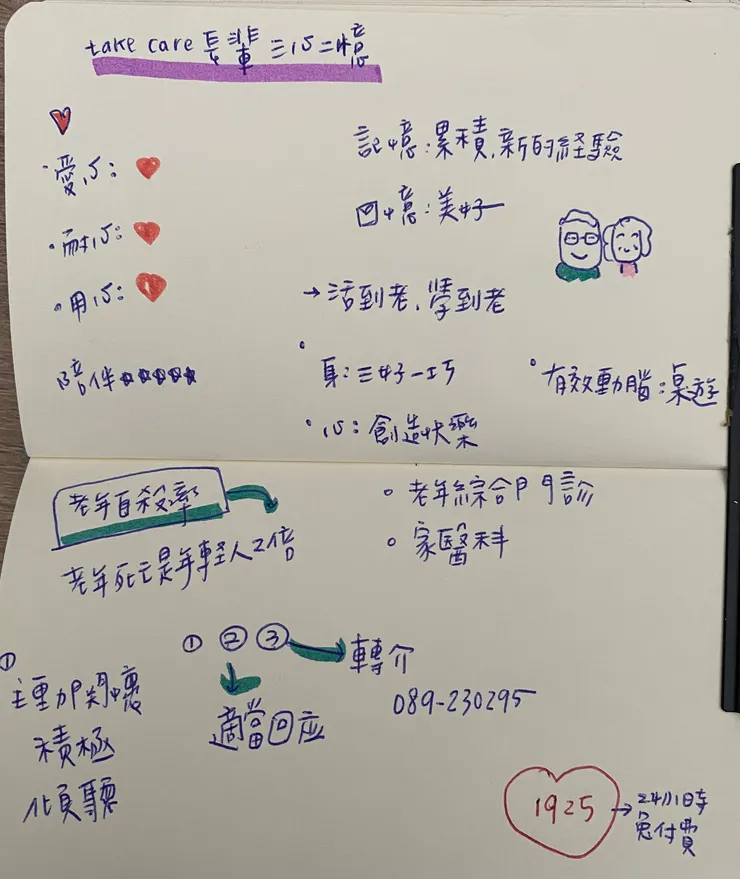 take care 長輩 三心二憶
・愛心:
・耐心:
・用心:
陪伴
記憶:累積,新的経驗
回憶:美好
→活到老,學到老
・身:三好一巧
・心:創造快樂
・有效動腦:桌遊
老年自殺率
老年死亡是年輕人2倍
。老年綜合門診
。家醫科
① ② ③
轉介
089-230295
適當回应
①
主動関懷
積極
傾聽
1925
→24小時
免付費